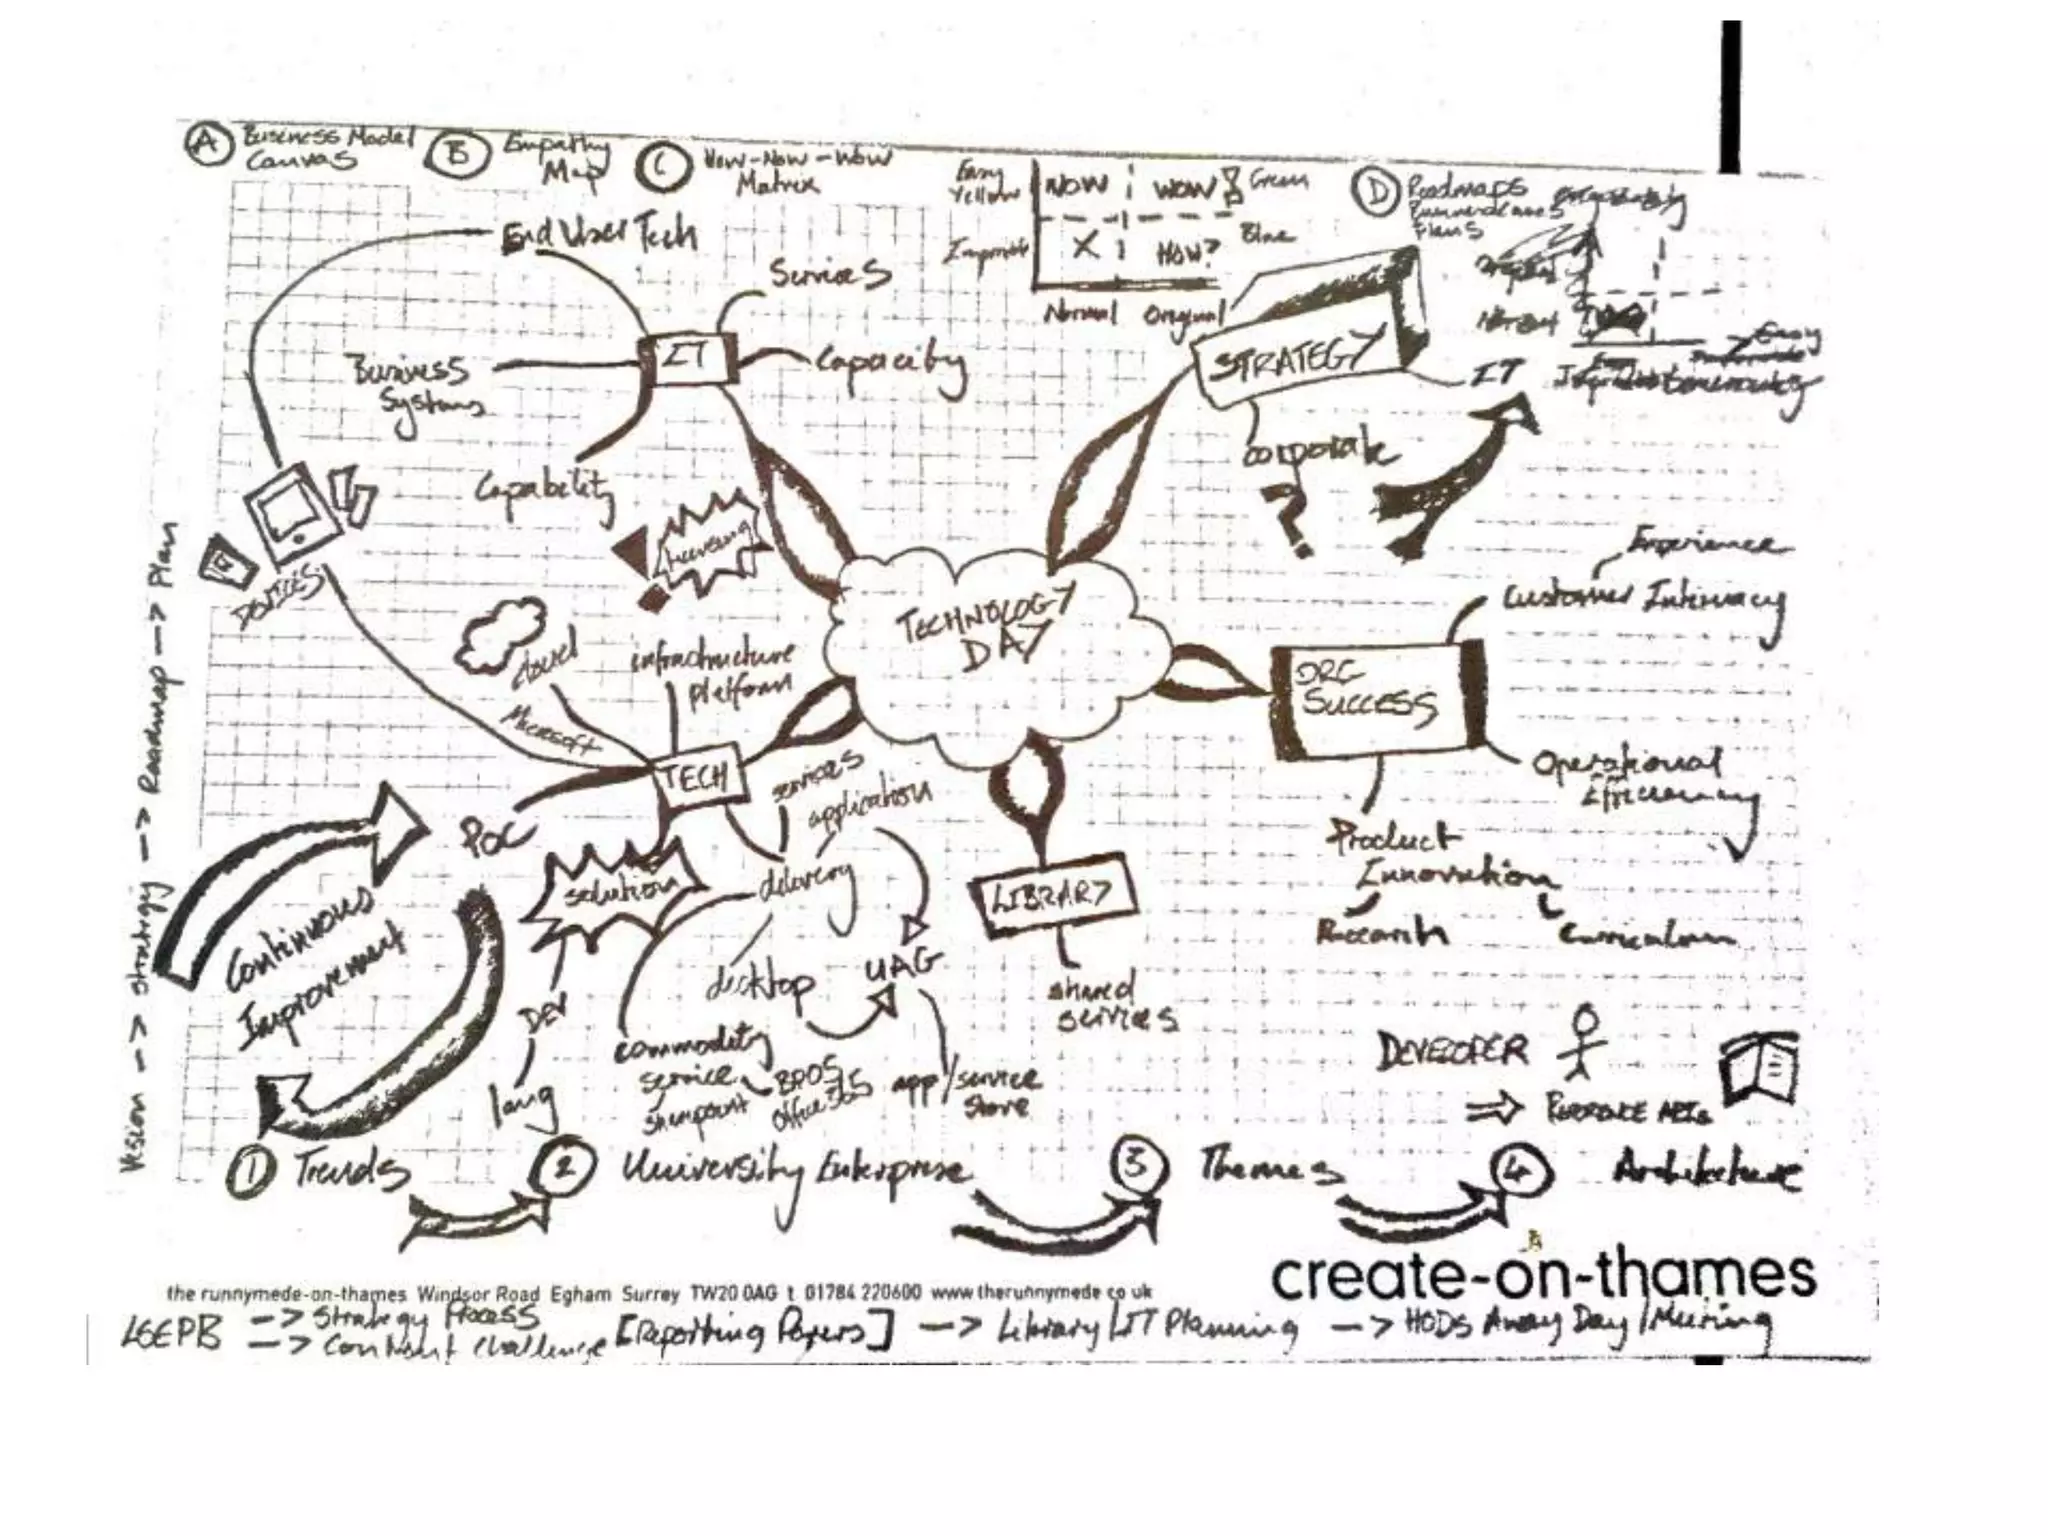 A Business Model
Canvas
B Empathy
Map
C How-Now-Wow
Matrix
Easy
Yellow
NOW
WOW
Green
X
HOW?
Blue
Normal
Original
D Roadmaps
Plans
End User Tech
Services
IT
Capacity
Business
Systems
Capability
STRATEGY
IT
Easy
corporate
?
licensing
DEVICES
Vision -> strategy -> Roadmap -> Plan
TECHNOLOGY
DAY
Experience
Customer Intimacy
ORG
SUCCESS
Operational
Efficiency
Product
Innovation
Research
Curriculum
cloud
infrastructure
platform
Microsoft
TECH
services
application
POC
solution
delivery
LIBRARY
Continuous
Improvement
desktop
UAG
shared
services
DEV
lang
commodity
service
sharepoint
BPOS
Office 365
app/service
store
DEVELOPER
=> REFERENCE APIs
1 Trends
2 University Enterprise
3 Themes
4 Architecture
create-on-thames
the runnymede-on-thames Windsor Road Egham Surrey TW20 0AG t 01784 220600 www.therunnymede.co.uk
-> Strategy Process
-> Content Challenge
[Reporting Papers] -> Library/IT Planning -> HODs Away Day/Meeting